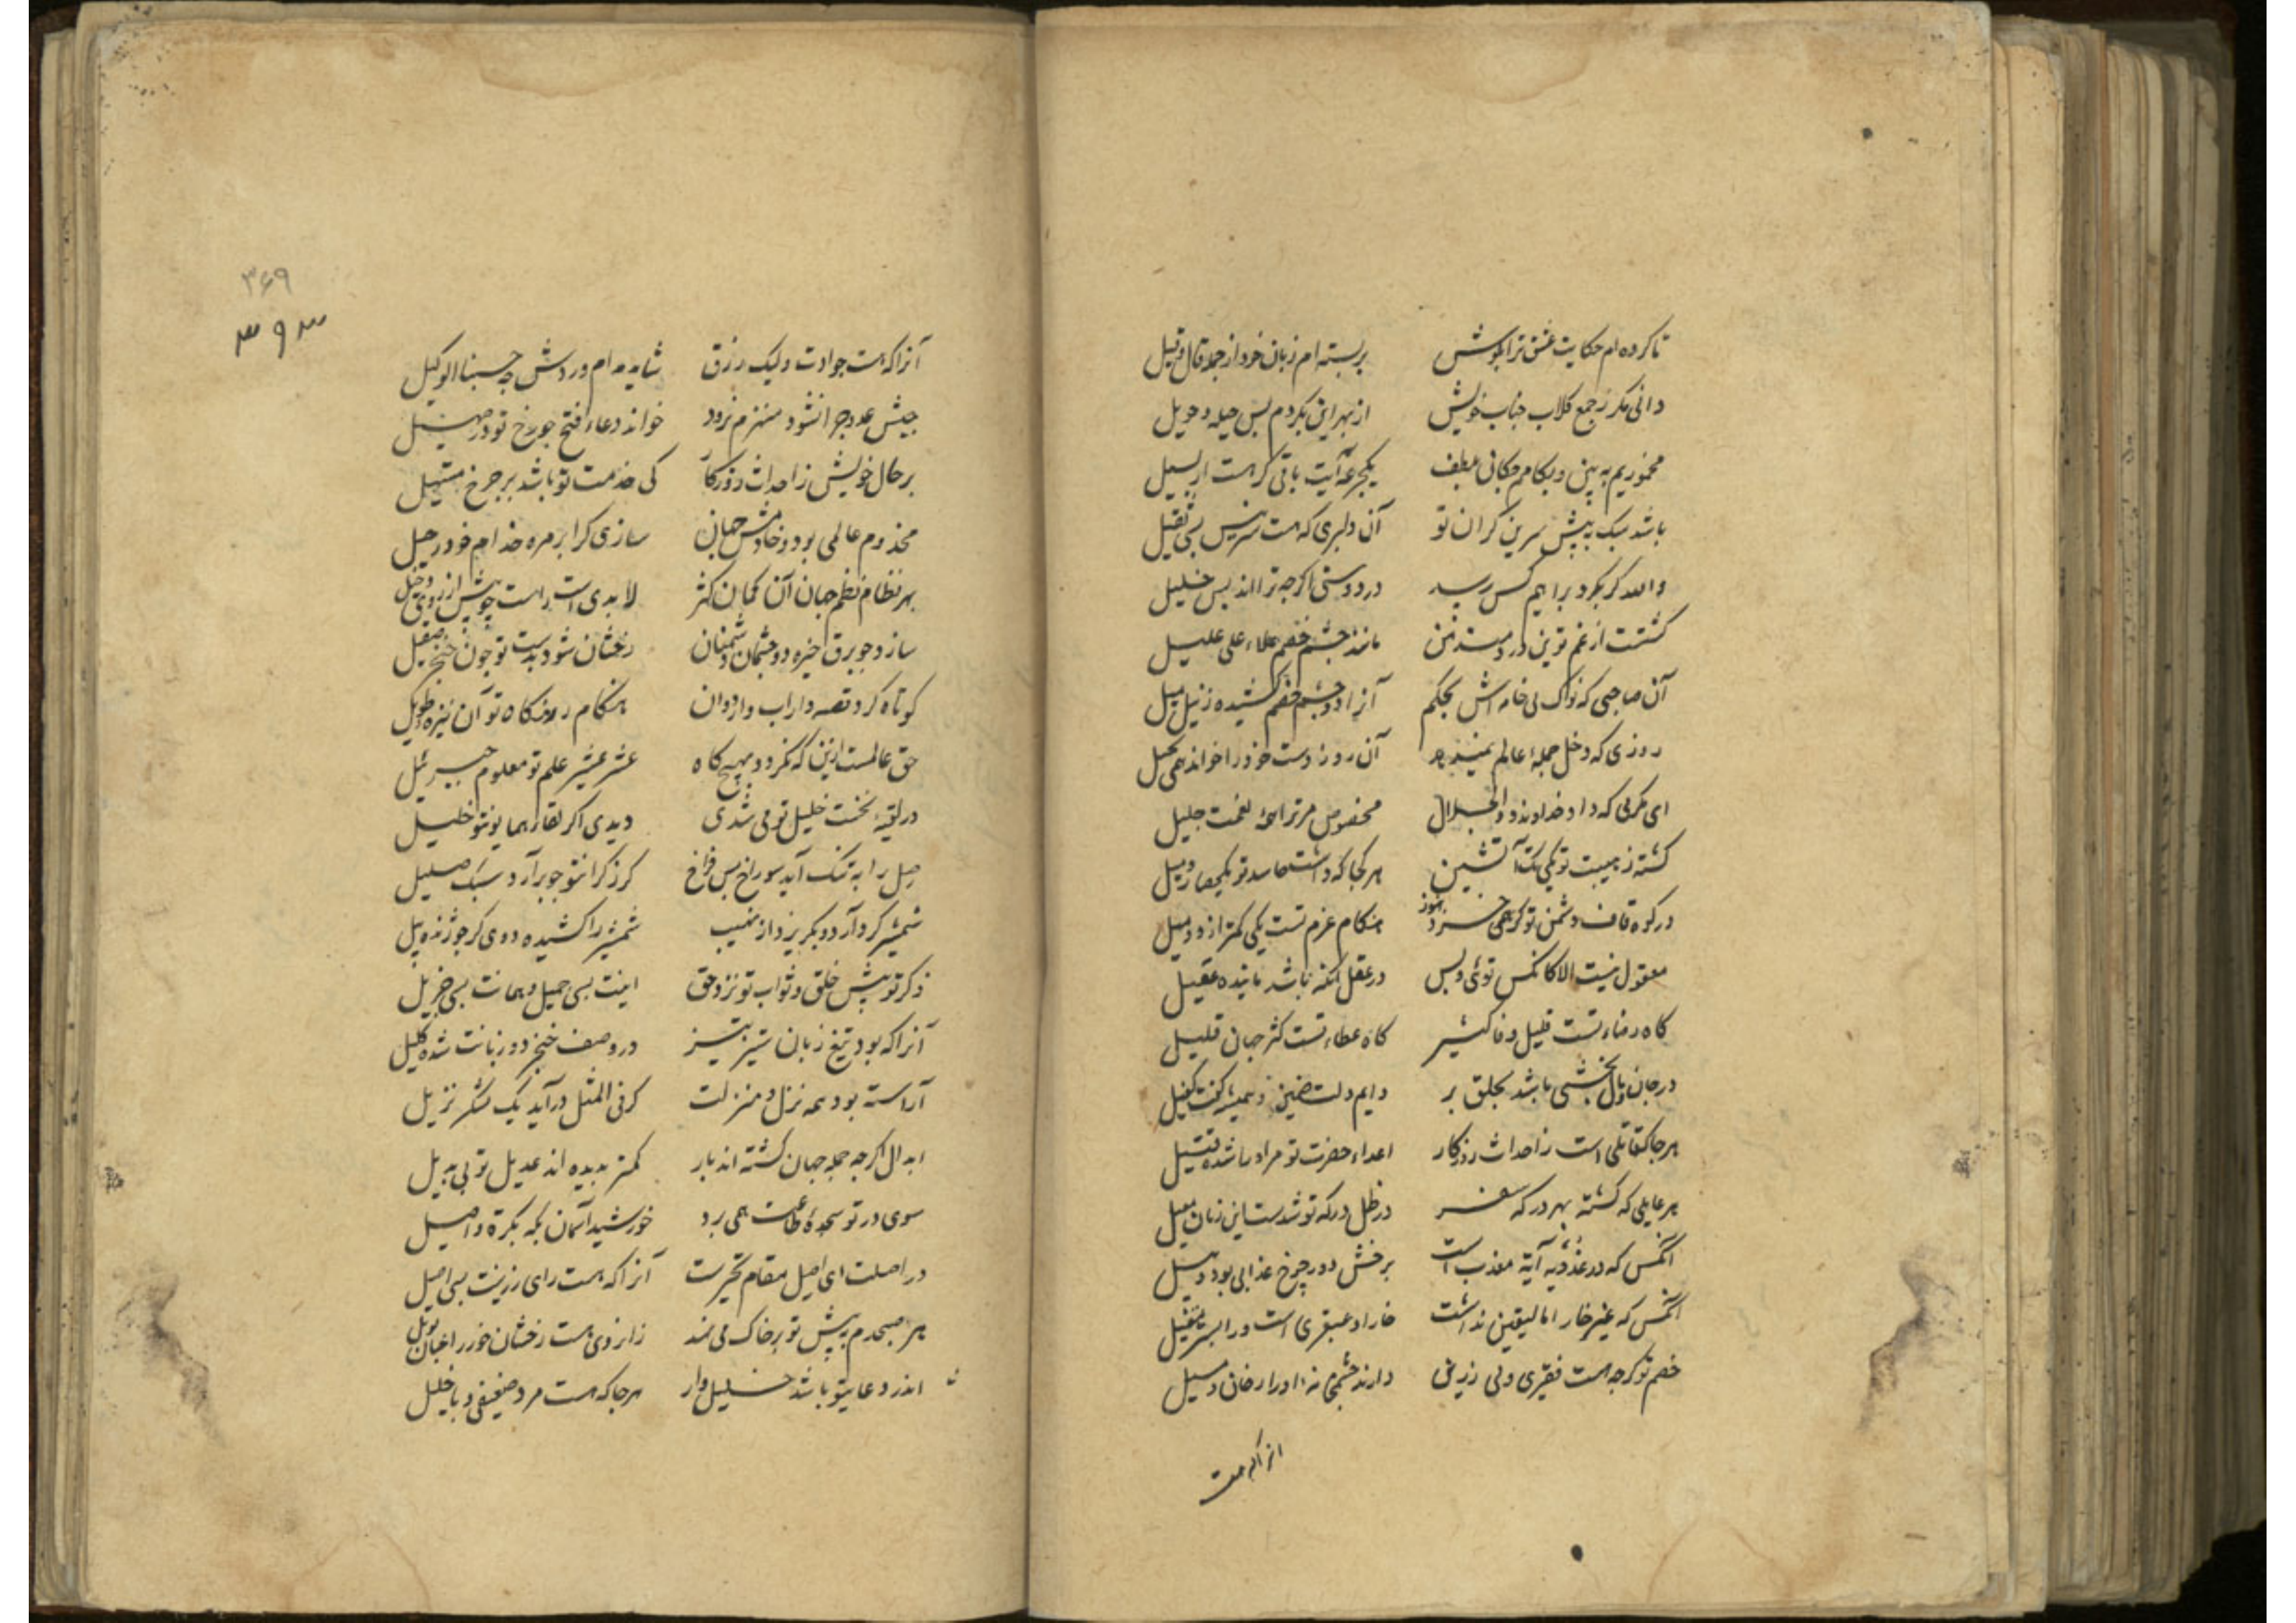 تا کرده ام حکایت عشق ترا بگوش بر بسته ام زبان خرد از جمله قال و قیل
دانی مگر ز جمع کلاب جناب خویش از بهر این بکردم بس حیله و حویل
مخموریم به بین و بکامم چکانی بلطف یکجرعه آیت باقی کر هست ار سبیل
باشد سبک به پیش سرین کران تو آن دلبری که هست سرینس بسی ثقیل
والله کر بکرد براهیم کس رسد در دوستی اکرچه ترا اند بس خلیل
کشتست از غم تو تن دردمند من مانند چشم خصم علاء علی علیل
آن صاحبی که نوک نی خامه اش بحکم آنرا دو چشم خصم کشیده ز نیل میل
روزی که دخل جمله عالم آن روز دست خود را خواند همی بخیل
ای مکرمی که داد خداوند ذوالجلال مخصوص مر ترا همه نعمت جلیل
کشته ز هیبت تو یکی آتشین هر کجا که داشت حاسد تو یک
در کوه قاف دشمن تو کر همی خزد هنوز هنگام عزم تست یکی کمتر از دو میل
معقول نیست الا کانکس توئی و بس در عقل آنکه باشد ماننده عقیل
کاه رضاء تست قلیل وفا کثیر کاه عطاء تست کثر جهان قلیل
در جان و مال بخشی باشد بخلق بر دایم دلت ضمین و همیشه کفت کفیل
هر جا که قاتلی است ز احداث روزکار اعداء حضرت تو مر او را شده قتیل
هر عایلی که کشته بهر درکه در ظل درکه تو شدست این زمان معیل
آنکس که در عذوبه آیة معذب است بر خش دور چرخ عذابی بود وبیل
آنکس که غیر خار اما لیقین نداشت خارا و عبقری است ورا بستر
خصم تو کرچه هست فقیری ولی زرش دارند چشم نه او را رخان و سیل
انرا که هست
۳۶۹
۳۹۳
آنرا که هست جوادت ولیک رزق شاید مدام وردش چه حسبنا الوکیل
جیش عدو چرا نشود منهزم بزود خواند دعاء فتح چو رخ تو در صهیل
بر حال خویش ز احداث روزکار کی خدمت تو باشد بر چرخ مستحیل
مخدوم عالمی بود و خادمش جهان سازی کرا بزمره خدام خود رحیل
بهر نظام نظم جهان آن کمان کثر لابدی است راست چو پیش از روی
سازد چو برق خیره دو چشمان دشمنان رخشان شود بدست تو چون خنجر صقیل
کوتاه کرد قصه داراب و اردوان هنگام رزمگاه تو آن نیزه طویل
حق عالمست ازین که نکردد بهیچ کاه عشر عشیر علم تو معلوم جبرئیل
در بخت خلیل تو می شدی دیدی اکر لقاء همایونتو خلیل
پیل را به تنک آید سوراخ بس فراخ کرز کرانتو چو برآرد سبک صلیل
شمشیر کرد آرد و بکریزد از نهیب شمشیر را کشیده دوی کر چو ژنده پیل
ذکر تو پیش خلق و ثواب تو نزد حق اینت بسی جمیل و همانت بسی جزیل
آنرا که بود تیغ زبان تیز تیز در وصف خنجر دو زبانت شده کلیل
آراسته بود همه نزل و منزلت کر فی المثل درآید یک لشکر نزیل
ابدال اکرچه جمله جهان کشته اند بار کمتر بدیده اند عدیل تو بی بدیل
سوی در تو سجده طاعت همی برد خورشید آسمان بکه بکرة و اصیل
در اصلت ای اصیل مقام تحیرست آنرا که هست رای رزینت بسی اصیل
هر صبحدم به پیش تو بر خاک می نهد زانروی هست رخشان خور را
اندر دعایتو باشد خلیل وار هر جا که هست مرد ضعیفی و با خلیل